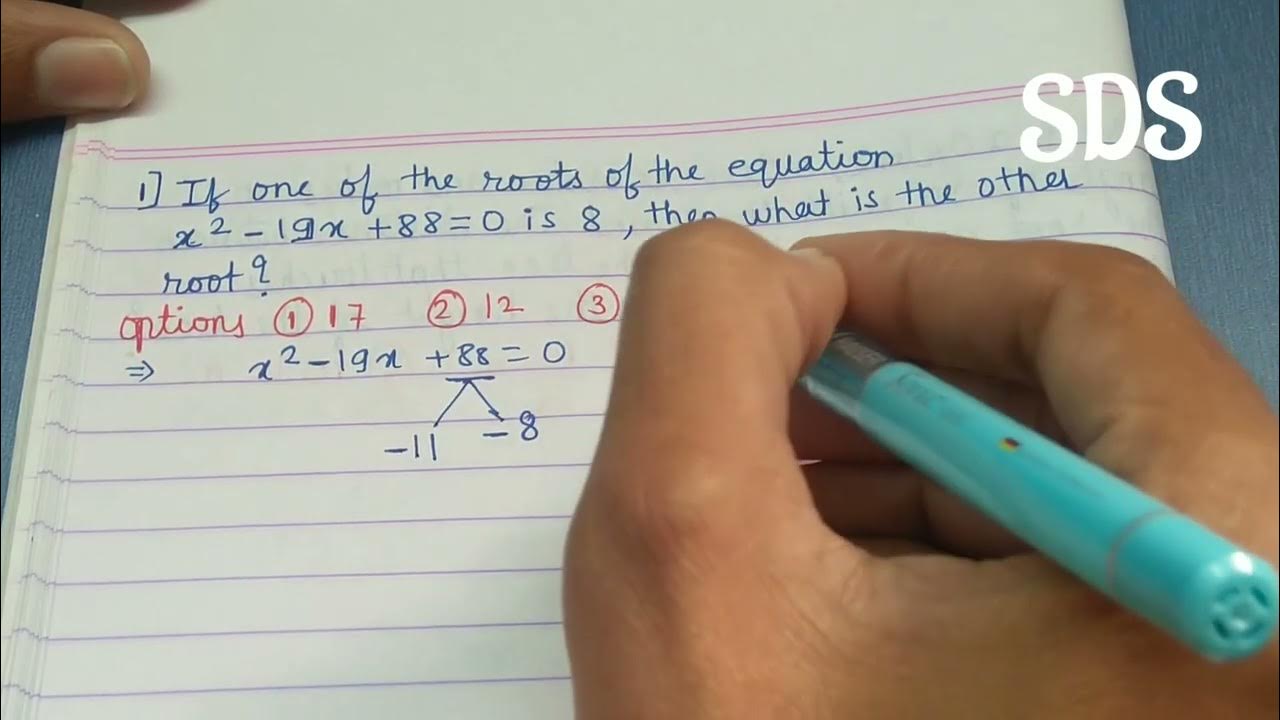 SDS
1] If one of the roots of the equation
x² - 19x + 88 = 0 is 8, then what is the other
root?
options ① 17 ② 12 ③
⇒ x² - 19x + 88 = 0
-11 -8